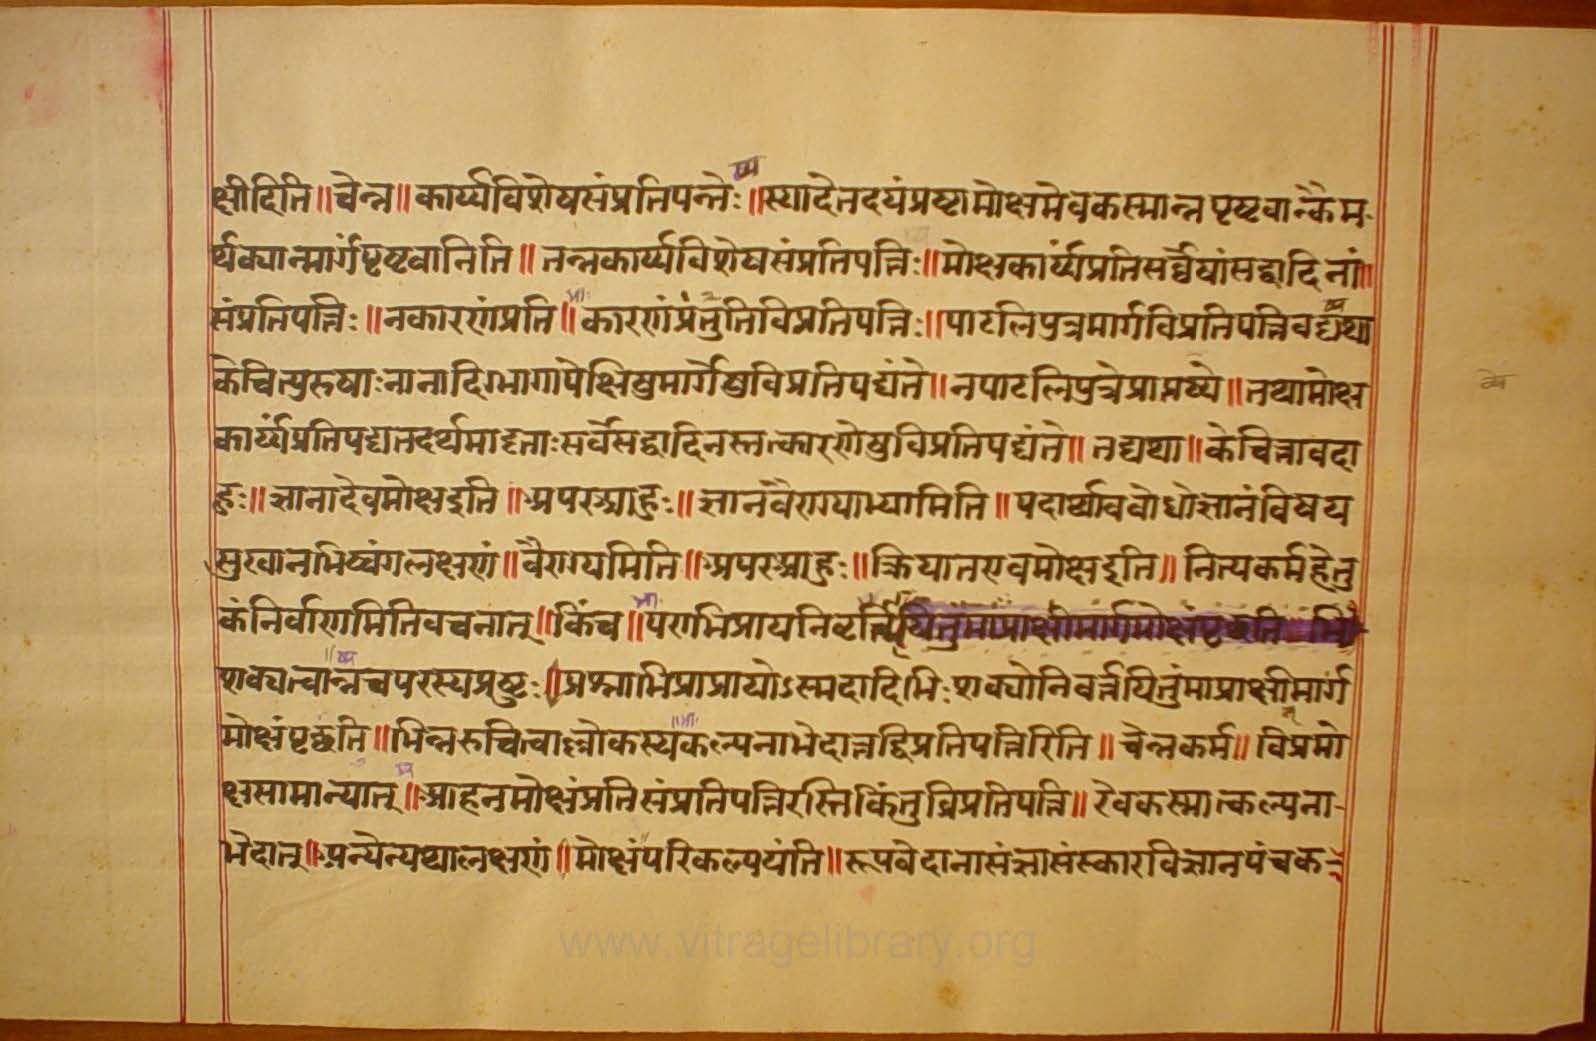 क्षीदिति॥चेन्न॥कार्य्यविशेषसंप्रतिपन्तेः॥स्यादेतदयंप्रष्टामोक्षमेवकस्मान्नपृष्टवान्कैम-
र्थक्यान्मार्गंपृष्टवानिति॥तन्नकार्य्यविशेषसंप्रतिपत्तिः॥मोक्षकार्य्यंप्रतिसर्व्वेषांसद्वादिनां॥
संप्रतिपत्तिः॥नकारणंप्रति॥कारणंप्रंतुतिविप्रतिपत्तिः॥पाटलिपुत्रमार्गविप्रतिपत्तिवद्यथा
केचित्पुरुषाःनानादिग्भागापेक्षिषुमार्गेषुविप्रतिपद्यंते॥नपाटलिपुत्रेप्राप्तव्ये॥तथामोक्ष
कार्य्यंप्रतिपद्यतदर्थमादृताःसर्वेसद्वादिनस्तत्कारणेषुविप्रतिपद्यंते॥तद्यथा॥केचित्तावदा
हुः॥ज्ञानादेवमोक्षइति॥अपरआहुः॥ज्ञानवैराग्याभ्यामिति॥पदार्थावबोधोज्ञानंविषय
सुखानभिष्वंगलक्षणं॥वैराग्यमिति॥अपरआहुः॥क्रियातएवमोक्षइति॥नित्यकर्महेतु
कंनिर्वाणमितिवचनात्॥किंच॥पराभिप्रायनिवर्त्त
शक्यत्वान्नचपरस्यप्रष्टुः॥प्रश्नाभिप्राप्रायोऽस्मदादिभिःशक्योनिवर्त्तयितुंमाप्राक्षीमार्ग
मोक्षंपृछंति॥भिन्नरुचित्वाल्लोकस्यकल्पनाभेदात्तद्विप्रतिपत्तिरिति॥चेन्नकर्म॥विप्रमो
क्षसामान्यात्॥आहनमोक्षंप्रतिसंप्रतिपत्तिरस्तिकिंतुविप्रतिपत्ति॥रेवकस्मात्कल्पना-
भेदात्॥अन्येन्यथालक्षणं॥मोक्षंपरिकल्पयंति॥रूपवेदानासंज्ञासंस्कारविज्ञानपंचक
www.vitragelibrary.org